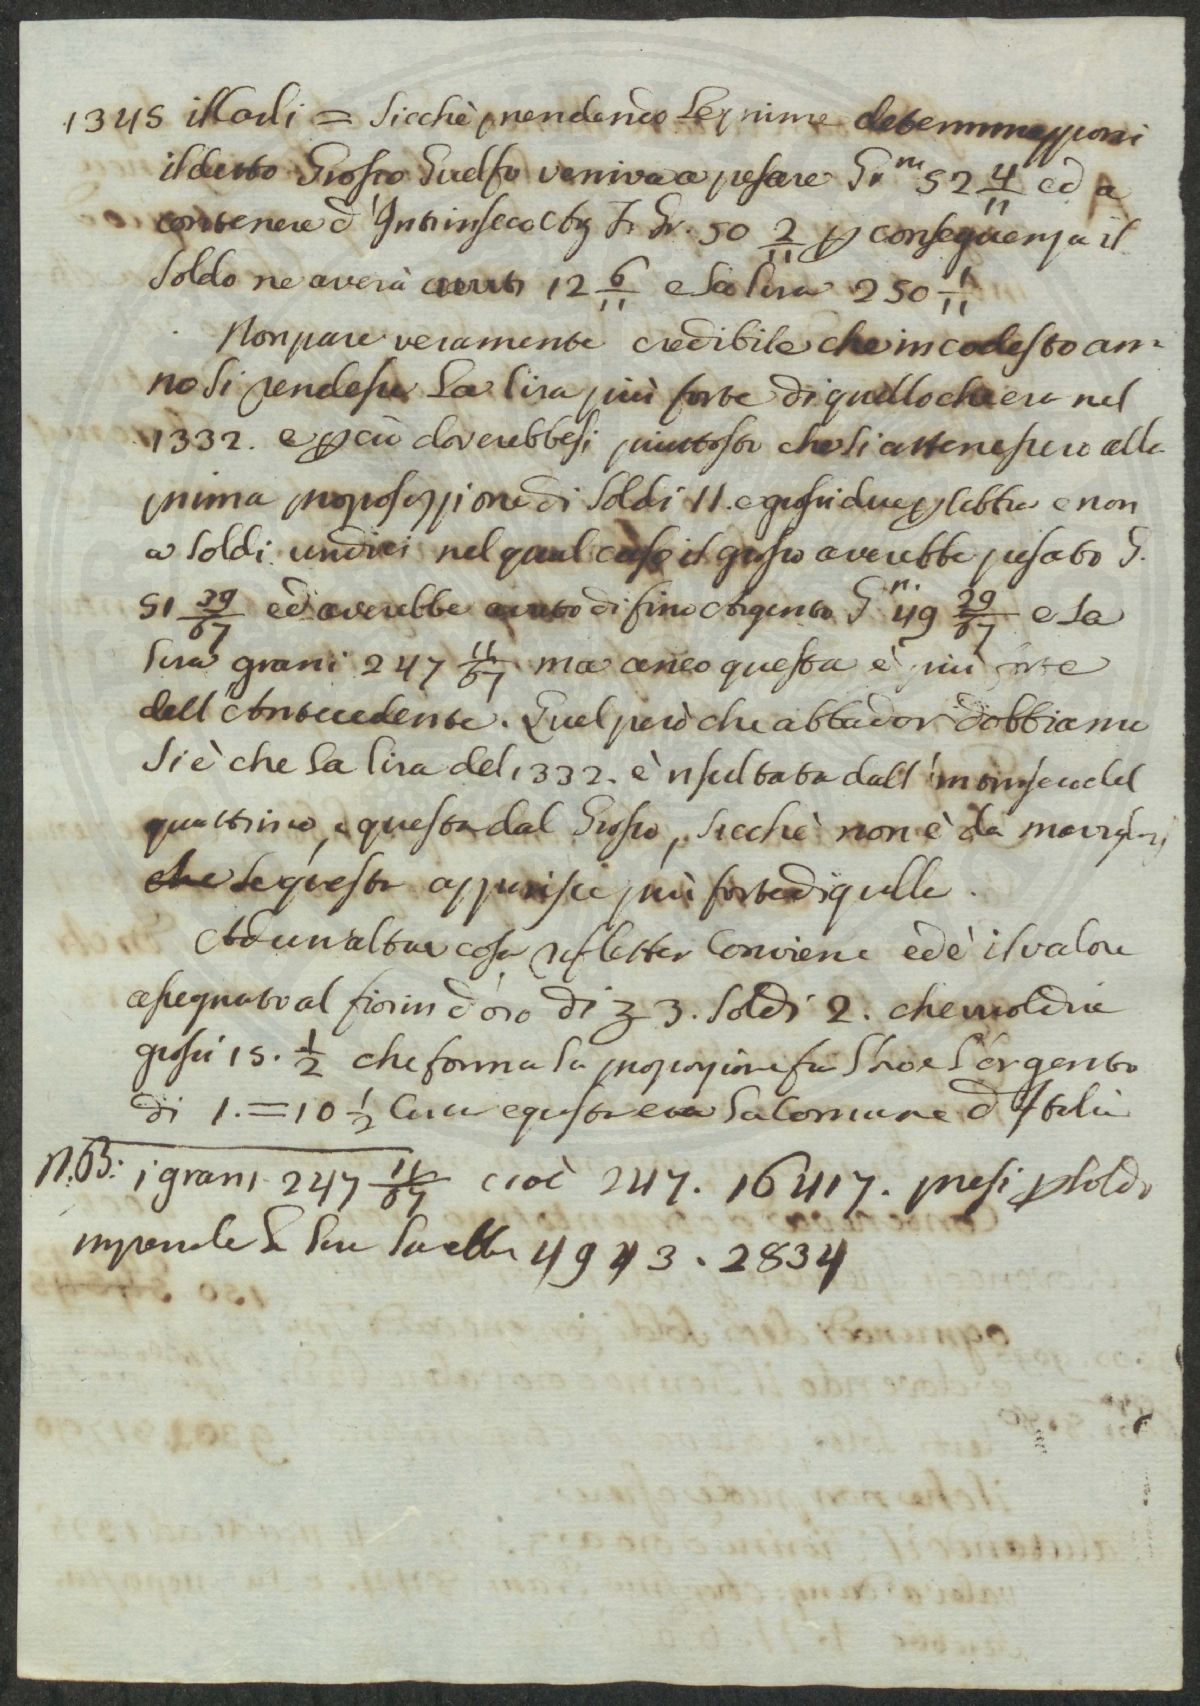 1345 ill Morti = Sicchè prendendo le prime determinazzioni
il detto Grosso Guelfo veniva a pesare G.ni 52 4/11 ed a
contenere d'Intrinseco Arg F. Gr. 50 2/11 p conseguenza il
Soldo ne averà avuti 12 6/11 e la lira 250 1/11
Non pare veramente credibile che in codesto an=
no si rendesse la lira più forte di quello che era nel
1332. e p ciò doverebbesi piuttosto che si attenessero alla
prima proposizzione di Soldi 11. e grossi due p libbra e non
a Soldi undici nel qual caso il grosso averebbe pesato G.
51 39/67 ed averebbe avuto di fino Argento G.ni 49 29/67 e la
lira grani 247 11/67 ma anco questa è più forte
dell'Antecedente. Quel però che abbadar dobbiamo
Si è che la lira del 1332. è risultata dall'intrinseco del
quattrino, e questa dal Grosso, sicchè non è da
che se questa apparisce più forte di quella.
Ad un'altra cosa refletter Conviene ed è il valore
assegnato al fiorin d'oro di ʒ 3. Soldi 2. che vuol dire
grossi 15. 1/2 che forma la proporzione fra l'oro e l'argento
di 1. = 10 1/2 e questa era la Comune d'Italia
N.B: i grani 247 11/67 cioè 247. 16417. presi p Soldo
4943. 2834